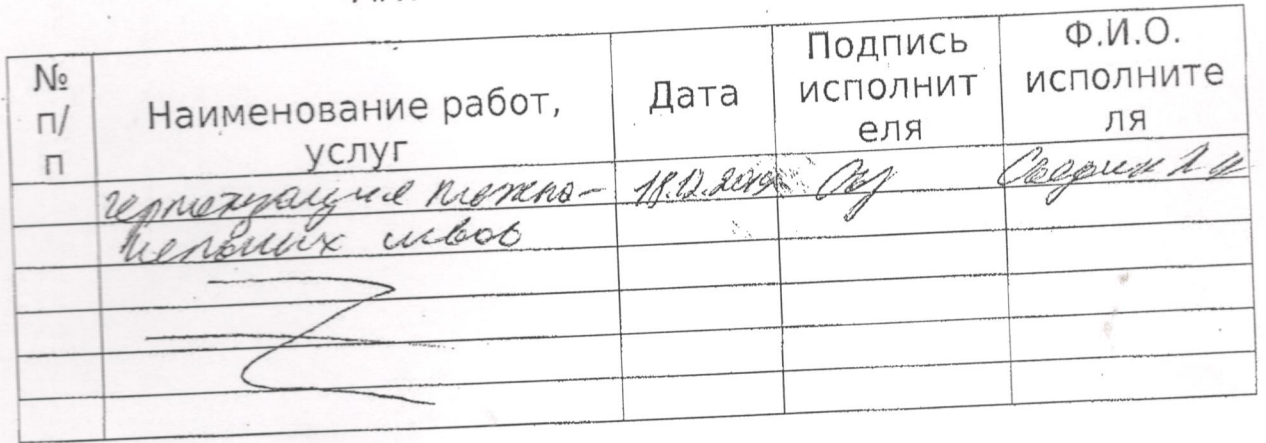 № п/п Наименование работ, услуг Дата Подпись исполнителя Ф.И.О. исполнителя
герметизация межпа-
нельных швов
18.12.2019